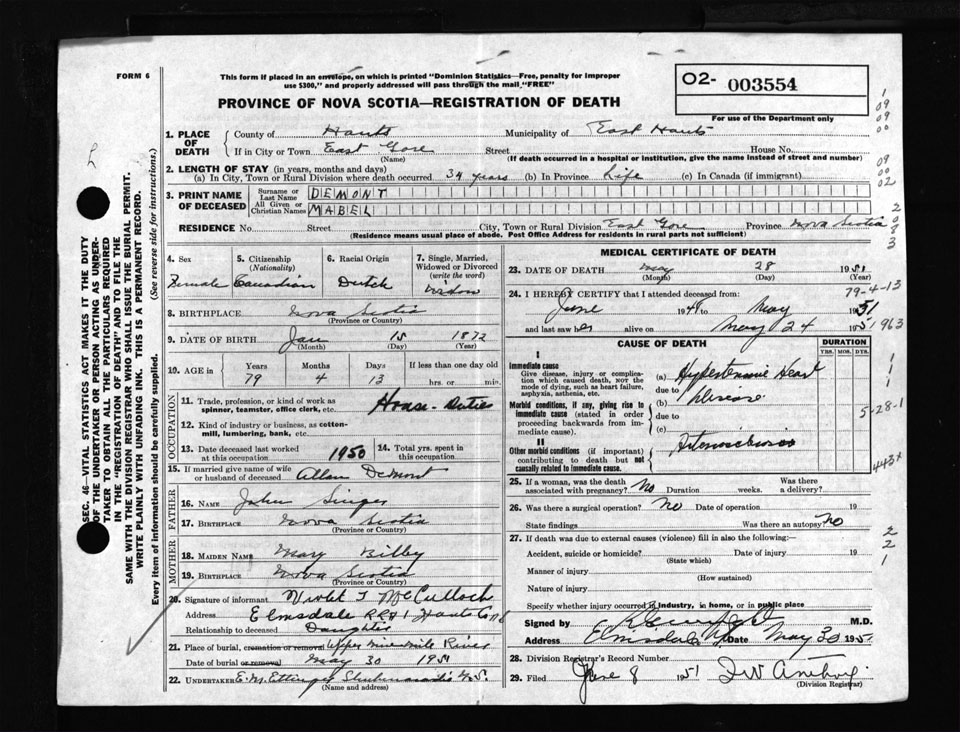 FORM 6
This form if placed in an envelope, on which is printed "Dominion Statistics—Free, penalty for improper
use $300," and properly addressed will pass through the mail "FREE"
PROVINCE OF NOVA SCOTIA—REGISTRATION OF DEATH
O2- 003554
For use of the Department only
1. PLACE OF DEATH
County of Hants Municipality of East Hants
If in City or Town East Gore Street House No.
(Name) (If death occurred in a hospital or institution, give the name instead of street and number)
2. LENGTH OF STAY (in years, months and days)
(a) In City, Town or Rural Division where death occurred 34 years (b) In Province Life (c) In Canada (if immigrant)
3. PRINT NAME OF DECEASED
Surname or Last Name DEMONT
All Given or Christian Names MABEL
RESIDENCE No. Street City, Town or Rural Division East Gore Province Nova Scotia
(Residence means usual place of abode. Post Office Address for residents in rural parts not sufficient)
4. Sex Female
5. Citizenship (Nationality) Canadian
6. Racial Origin Dutch
7. Single, Married, Widowed or Divorced (write the word) Widow
8. BIRTHPLACE Nova Scotia
(Province or Country)
9. DATE OF BIRTH Jan 15 1872
(Month) (Day) (Year)
10. AGE in Years Months Days If less than one day old
79 4 13 hrs. or min.
OCCUPATION
11. Trade, profession, or kind of work as
spinner, teamster, office clerk, etc. House-Duties
12. Kind of industry or business, as cotton-
mill, lumbering, bank, etc.
13. Date deceased last worked at this occupation 1950
14. Total yrs. spent in this occupation
15. If married give name of wife
or husband of deceased Allan Demont
FATHER
16. NAME John Singer
17. BIRTHPLACE Nova Scotia
(Province or Country)
MOTHER
18. MAIDEN NAME Mary Bilby
19. BIRTHPLACE Nova Scotia
(Province or Country)
20. Signature of informant Violet J McCulloch
Address Elmsdale RR#1 Hants Co NS
Relationship to deceased Daughter
21. Place of burial, cremation or removal Upper Nine Mile River
Date of burial or removal May 30 1951
22. UNDERTAKER E. M. Ettinger Shubenacadie N.S.
(Name and address)
MEDICAL CERTIFICATE OF DEATH
23. DATE OF DEATH May 28 1951
(Month) (Day) (Year)
79-4-13
24. I HEREBY CERTIFY that I attended deceased from:
June 1948 to May 1951
and last saw her alive on May 24 1951
963
CAUSE OF DEATH DURATION
YRS. MOS. DYS.
I
Immediate cause
Give disease, injury or complica-
tion which caused death, NOT the
mode of dying, such as heart failure,
asphyxia, asthenia, etc.
(a) Hypertensive Heart
due to
(b) Disease
Morbid conditions, if any, giving rise to
immediate cause (stated in order
proceeding backwards from im-
mediate cause).
due to
(c)
5-28-1
II
Other morbid conditions (if important)
contributing to death but not
causally related to immediate cause.
443x
25. If a woman, was the death
associated with pregnancy? No Duration weeks. Was there a delivery?
26. Was there a surgical operation? No Date of operation 19
State findings Was there an autopsy? No
27. If death was due to external causes (violence) fill in also the following:—
Accident, suicide or homicide? Date of injury 19
(State which)
Manner of injury
(How sustained)
Nature of injury
Specify whether injury occurred in industry, in home, or in public place
Signed by M.D.
Address Elmsdale NS Date May 30 1951
28. Division Registrar's Record Number
29. Filed June 8 1951
(Division Registrar)
SEC. 46—VITAL STATISTICS ACT MAKES IT THE DUTY
OF THE UNDERTAKER OR PERSON ACTING AS UNDER-
TAKER TO OBTAIN ALL THE PARTICULARS REQUIRED
IN THE "REGISTRATION OF DEATH" AND TO FILE THE
SAME WITH THE DIVISION REGISTRAR WHO SHALL ISSUE THE BURIAL PERMIT.
WRITE PLAINLY WITH UNFADING INK. THIS IS A PERMANENT RECORD.
Every item of information should be carefully supplied. (See reverse side for instructions.)
1
09
09
00
09
00
02
2
0
7
3
1
1
1
2
2
1